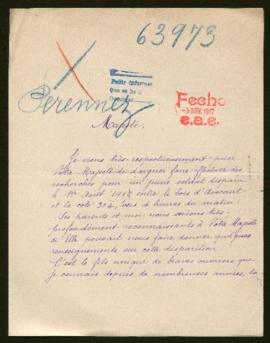 63973
Pedir informes
Fecho
3 NOV. 1917
e.a.e.
Perennez
Majesté,
Je viens très respectueusement prier
Votre Majesté de daigner faire effectuer des
recherches pour un jeune soldat disparu
le 1er Août 1917 entre le bois d'Avocourt
et la cote 304, vers 4 heures du matin.
Ses parents et moi, nous serions très
profondément reconnaissants à Votre Majesté
si Elle pouvait nous faire donner quelques
renseignements sur cette disparition.
C'est le fils unique de braves ouvriers que
je connais depuis de nombreuses années,